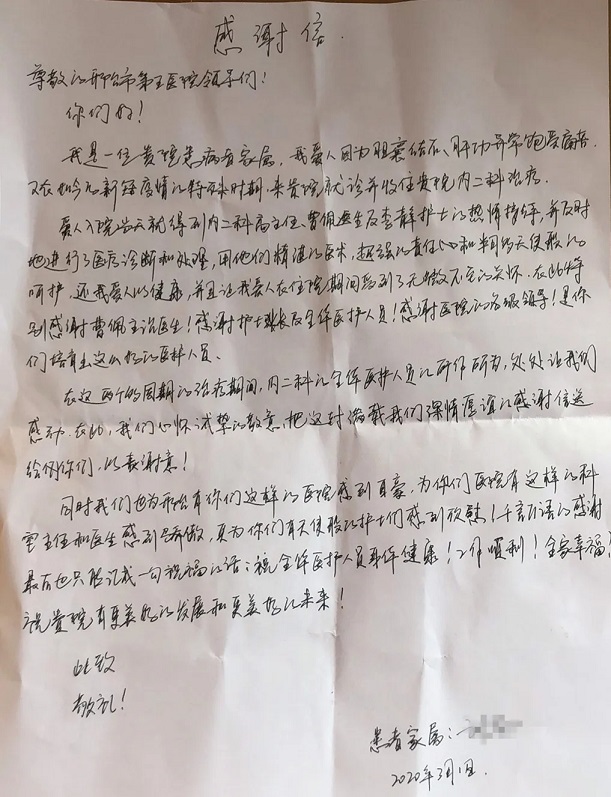 感谢信.
尊敬的邢台市第五医院领导们!
你们好!
我是一位贵院患病者家属,我爱人因为胆囊结石、肝功异常饱受痛苦
又在如今的新冠疫情的特殊时期,来贵院就诊并收住贵院内二科治疗.
爱人入院当天就得到内二科高主任、曹佩医生及李静护士的热情接待,并及时
地进行了医疗诊断和处理,用他们精湛的医术,超强的责任心和半日的天使般的
呵护,还我爱人以健康,并且让我爱人在住院期间得到了无微不至的关怀.在此特
别感谢曹佩主治医生!感谢护士长及全体医护人员!感谢医院的各级领导!是你
们培育出这么好的医护人员.
在这两个的周期的治疗期间,内二科的全体医护人员的所作所为,处处让我们
感动.在此,我们心怀诚挚的敬意,把这封满载我们深情厚谊的感谢信送
给你们,以表谢意!
同时我们也为邢台有你们这样的医院感到自豪,为你们医院有这样的科
室主任和医生感到骄傲,更为你们有天使般的护士们感到欣慰!千言万语的感谢
最后也只能汇成一句祝福的话:祝全体医护人员身体健康!工作顺利!全家幸福!
祝贵院有更美好的发展和更美好的未来!
此致
敬礼!
患者家属:
2020年3月1日.